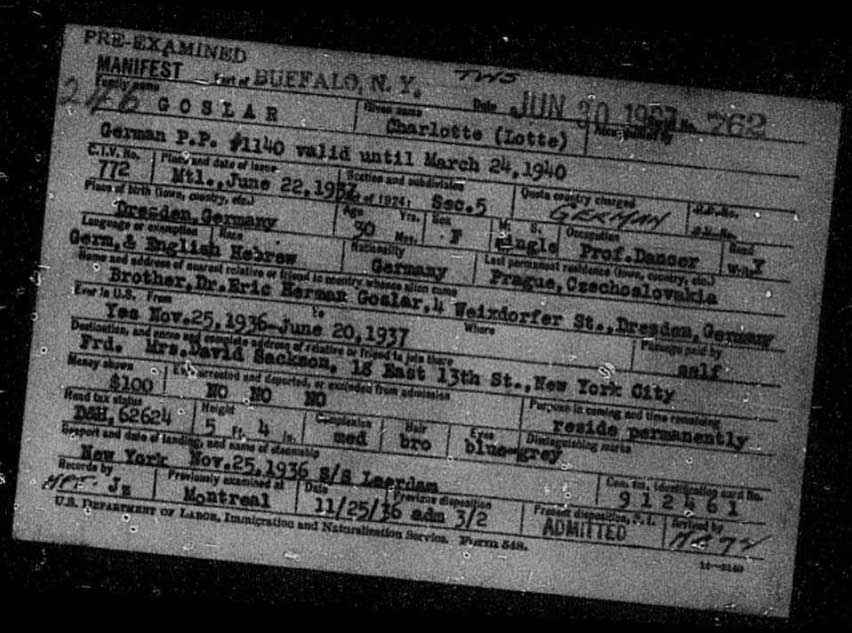 PRE-EXAMINED
MANIFEST Port of BUFFALO, N. Y. Date JUN 30 1937 No. 762
Family name GOSLAR Given name Charlotte (Lotte)
German P.P. #1140 valid until March 24,1940
C.I.V. No. 772 Place and date of issue Mtl.,June 22,1937 Section and subdivision Act of 1924: Sec.5 Quota country charged GERMAN
Place of birth (town, country, etc.) Dresden,Germany Age 30 Yrs. Mos. Sex F M. S. Single Occupation Prof.Dancer Read Write Y
Language or exemption Germ.& English Race Hebrew Nationality Germany Last permanent residence (town, country, etc.) Prague,Czechoslovakia
Name and address of nearest relative or friend in country whence alien came
Brother,Dr.Eric Herman Goslar,4 Weixdorfer St.,Dresden,Germany
Ever in U.S. From Yes Nov.25,1936-June 20,1937 To Where Passage paid by self
Destination, and name and complete address of relative or friend to join there
Frd. Mrs.David Sackson, 18 East 13th St.,New York City
Money shown $100 Ever arrested and deported, or excluded from admission NO NO NO Purpose in coming and time remaining reside permanently
Head tax status D&H,62624 Height 5 ft. 4 in. Complexion med Hair bro Eyes blue-grey Distinguishing marks
Seaport and date of landing, and name of steamship
New York Nov.25,1936 S/S Leerdam Identification card No. 912461
Records by Jz Previously examined at Montreal Date 11/25/36 Previous disposition adm 3/2 Present disposition, P.I. ADMITTED
U.S. DEPARTMENT OF LABOR, Immigration and Naturalization Service. Form 548.